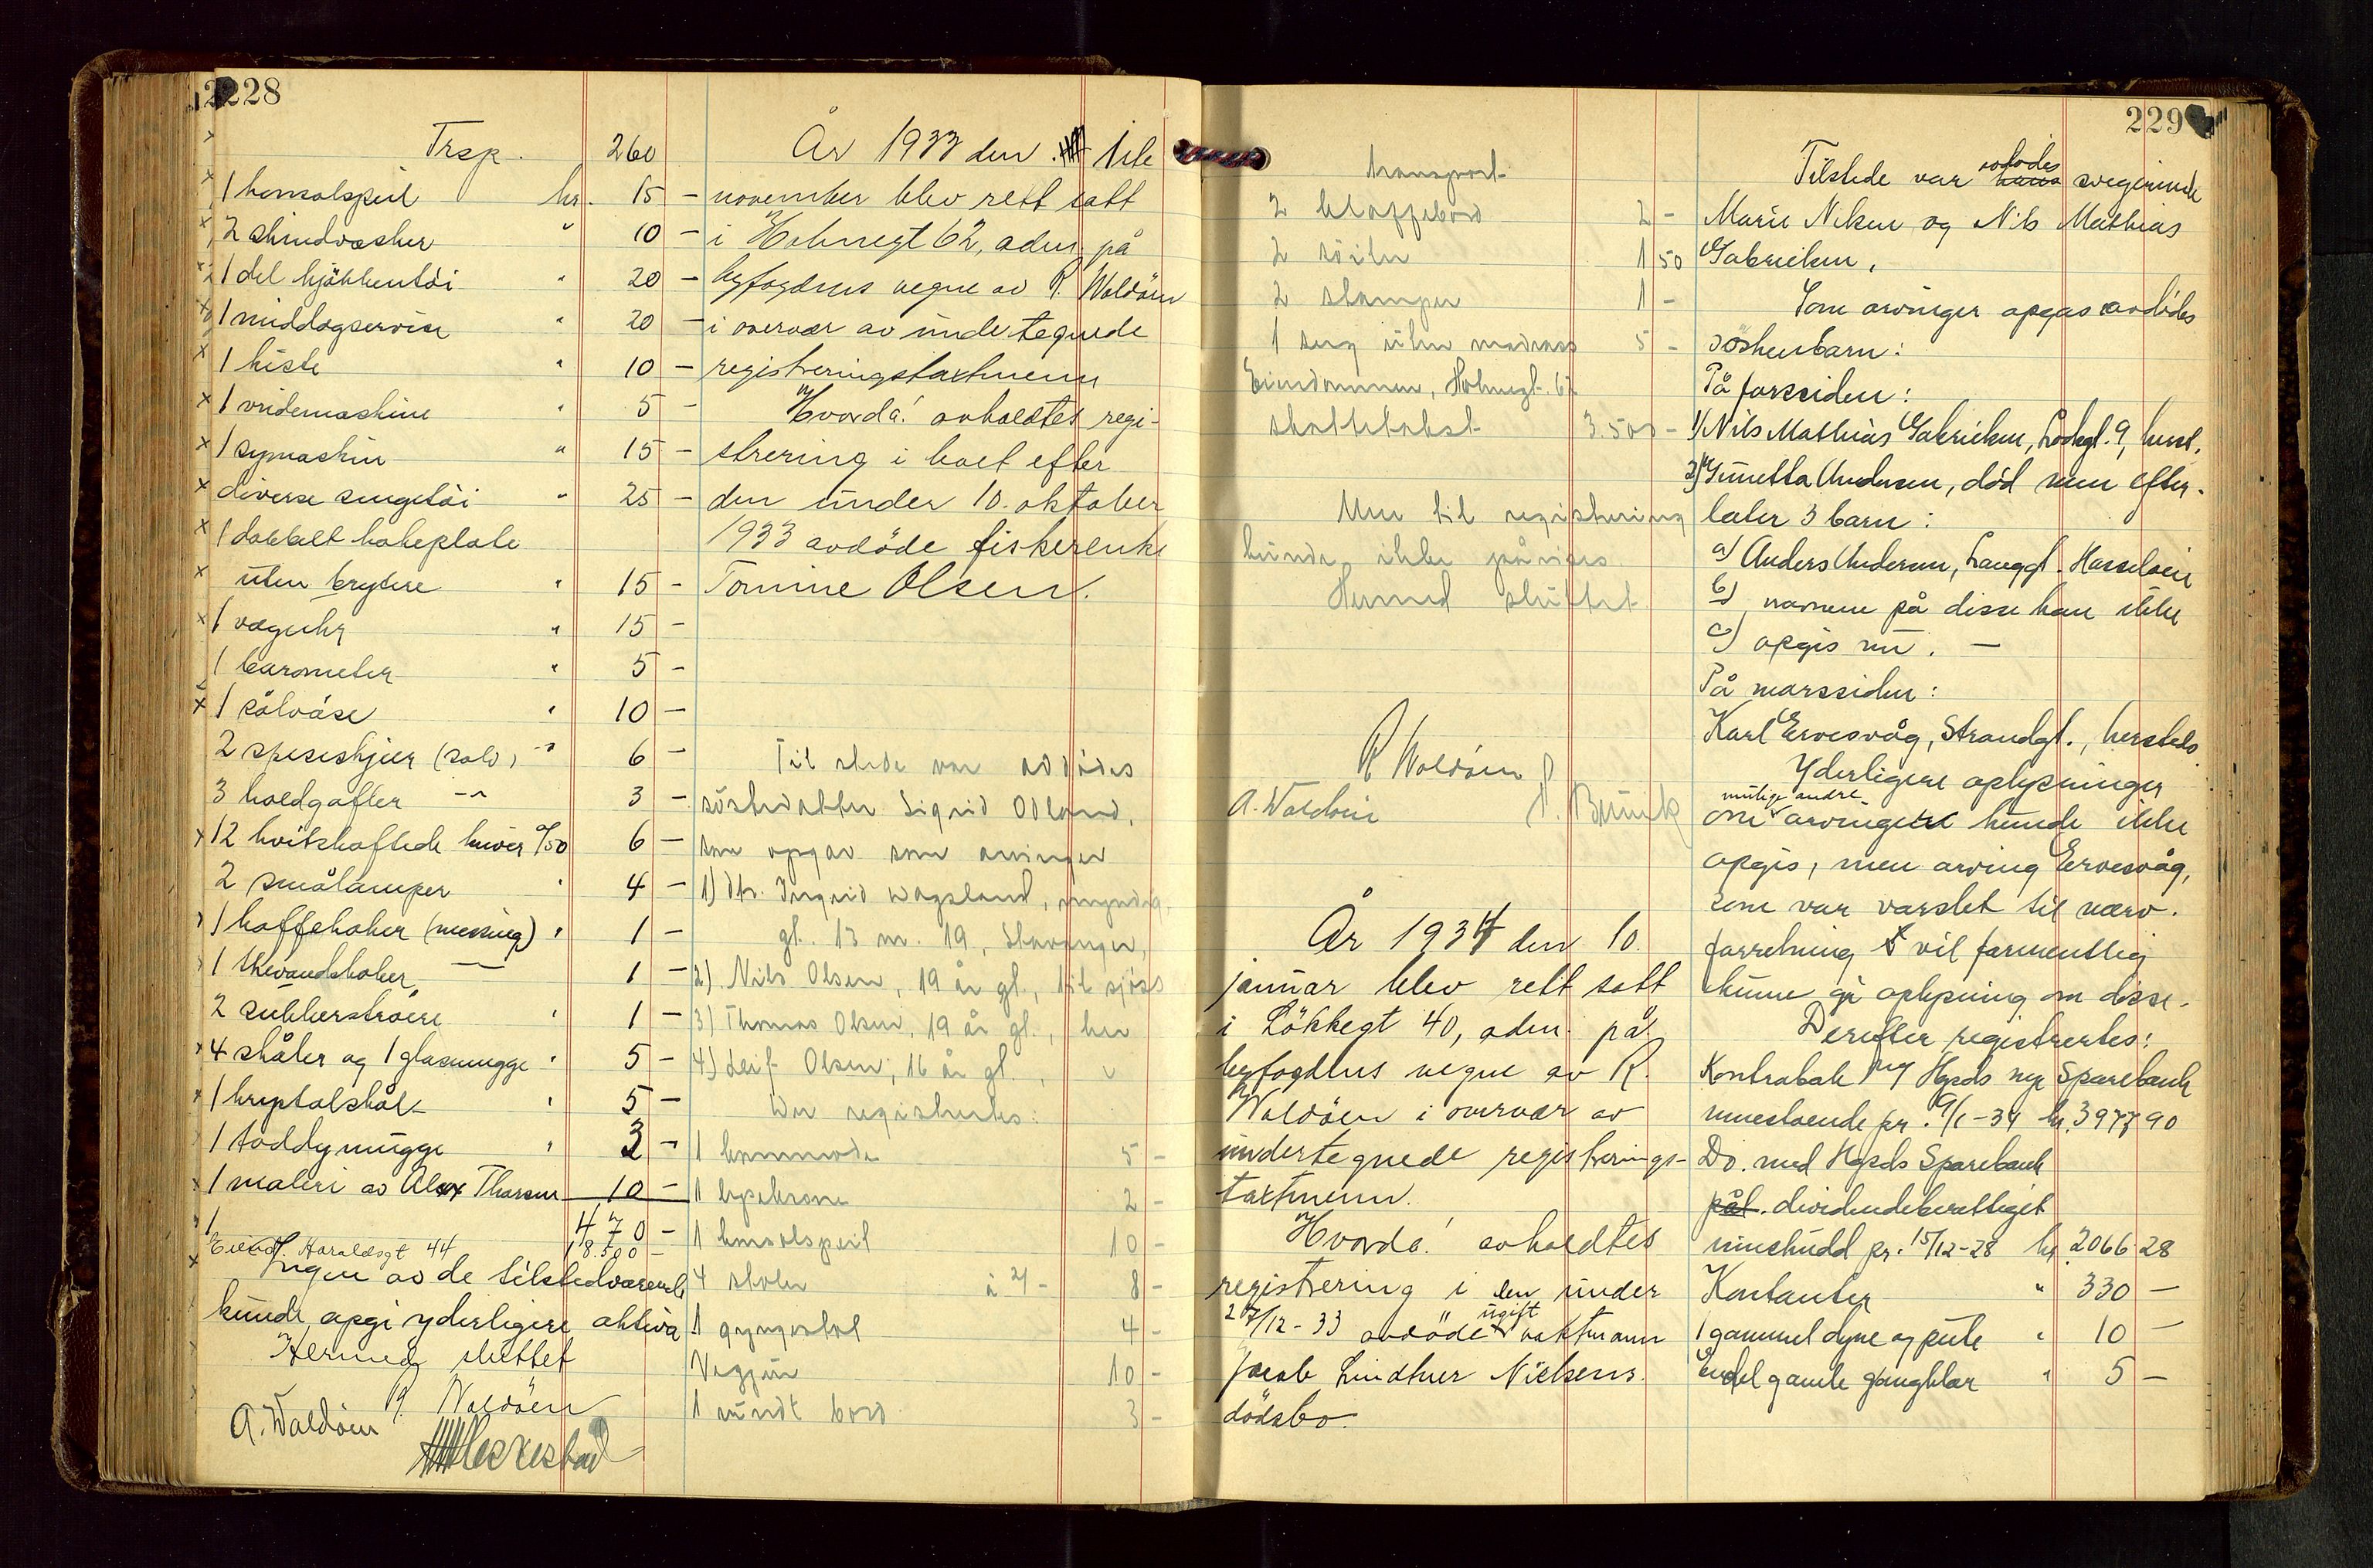 228
Trsp. 260
1 konsolspeil kr. 15 -
2 skindvesker " 10 -
1 del kjøkkentøi " 20 -
1 middagservise " 20 -
1 kiste " 10 -
1 vridemaskine " 5 -
1 symaskin " 15 -
diverse sengetøi " 25 -
1 dobbelt kokeplate
uten brytere " 15 -
1 væguhr " 15 -
1 barometer " 5 -
1 sølvåse " 10 -
2 speseskjeer (sølv) -"- 6 -
3 koldgafler -"- 3 -
12 hvitskaftede kniver 0/50 6 -
2 smålamper " 4 -
1 kaffekoker (messing) " 1 -
1 thevandskoker — 1 -
2 sukkerstrøere " 1 -
4 skåler og 1 glasmugge " 5 -
1 krystalskål " 5 -
1 toddymugge " 3 -
1 maleri av Alex Tharsen 10 -
470 -
Eiend. Haraldsgt 44 18.500 -
Ingen av de tilstedværende
kunde opgi yderligere aktiva.
Hermed sluttet
R. Waldøen
A. Waldøen
År 1933 den 1ste
november blev rett satt
i Holmegt 62, adm. på
byfogdens vegne av R. Waldøen
i overvær av undertegnede
registreringstaxtmenn
Hvorda! avholdtes regi-
strering i boet efter
den under 10. oktober
1933 avdöde fiskerenke
Tomine Olsen.
Til stede var avdødes
søsterdatter Sigrid Odland,
som opgav som arvinger
1) Fr. Ingrid Wagsland, myndig,
gt. 13 nr. 19, Stavanger,
2) Nils Olsen, 19 år gl., til sjøss
3) Thomas Olsen, 19 år gl., her
4) Leif Olsen, 16 år gl., "
Der registrertes:
1 kommode 5 -
1 lysekrone 2 -
1 konsolspeil 10 -
4 stoler à 2/- 8 -
1 gyngestol 4 -
Veggur 10 -
1 rundt bord 3 -
229
transport
2 klaffebord 2 -
2 söiler 1 50
2 stamper 1 -
1 seng uten madrass 5 -
Eiendommen, Holmegt. 62
skattetakst 3.500 -
Mer til registrering
kunde ikke påvises.
Hermed sluttet
R Waldøen
A. Waldøen
År 1934 den 10.
januar blev rett satt
i Lökkegt 40, adm. på
byfogdens vegne av R.
Waldøen i overvær av
undertegnede registrerings-
taxtmenn.
Hvorda! avholdtes
registrering i den under
27/12-33 avdöde ugift vaktmann
Jacob Lindtner Nielsens
dødsbo.
Tilstede var avdødes svigerinde
Marie Nilsen og Nils Mathias
Gabrielsen.
Som arvinger opgas avdødes
søskenbarn:
På farssiden:
1) Nils Mathias Gabrielsen, Lökkegt. 9, herst.
2) Gunetta Andersen, död men efter-
later 3 barn:
a) Anders Andersen, Langgt. Hasseløen
b) navnene på disse kan ikke
c) opgis nu. —
På morssiden:
Karl Ervesvåg, Strandgt., hersteds
Yderligere oplysninger
om mulige andre arvinger kunde ikke
opgis, men arving Ervesvåg,
som var varslet til nærv.
forretning vil formentlig
kunne gi oplysning om disse.
Derefter registrertes:
Kontrabok med Hgsds nye Sparebank
innestaaende pr. 9/1-34 kr. 3977 90
Do. med Hgsds Sparebank
dividendeberettiget
innskudd pr. 15/12-28 kr. 2066 28
Kontanter " 330 -
1 gammel dyne og pute " 10 -
Endel gamle gangklær " 5 -